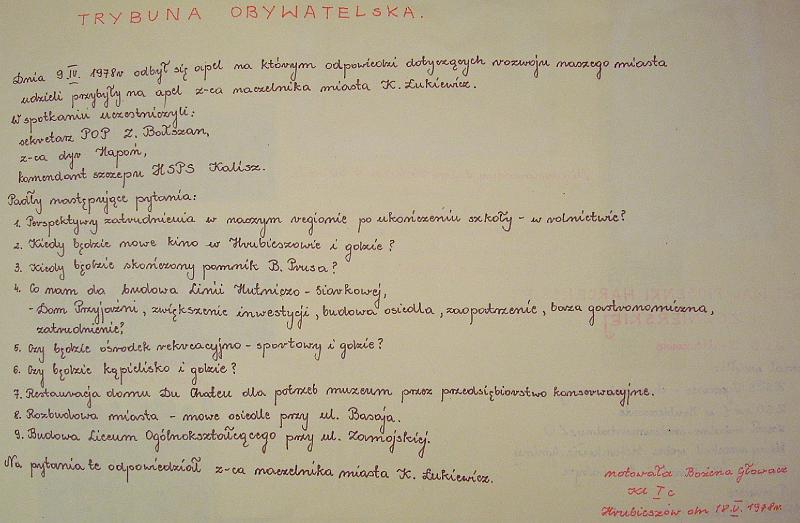 TRYBUNA OBYWATELSKA.
Dnia 9.IV. 1978r odbył się apel na którym odpowiedzi dotyczących rozwoju naszego miasta
udzieli przybyły na apel z-ca naczelnika miasta K. Łukiewicz.
W spotkaniu uczestniczyli:
sekretarz POP Z. Bołszan,
z-ca dyr Hapoń,
komendant szczepu HSPS Kalisz.
Padły następujące pytania:
1. Perspektywy zatrudnienia w naszym regionie po ukończeniu szkoły - w rolnictwie?
2. Kiedy będzie nowe kino w Hrubieszowie i gdzie?
3. Kiedy będzie skończony pomnik B. Prusa?
4. Co nam da budowa Linii Hutniczo - Siarkowej,
- Dom Przyjaźni, zwiększenie inwestycji, budowa osiedla, zaopatrzenie, baza gastronomiczna,
zatrudnienie?
5. Czy będzie ośrodek rekreacyjno - sportowy i gdzie?
6. Czy będzie kąpielisko i gdzie?
7. Restauracja domu Du Chateu dla potrzeb muzeum przez przedsiębiorstwo konserwacyjne.
8. Rozbudowa miasta - nowe osiedle przy ul. Basaja.
9. Budowa Liceum Ogólnokształcącego przy ul. Zamojskiej.
Na pytania te odpowiedział z-ca naczelnika miasta K. Łukiewicz.
notowała Bożena Głowacz
kl I c
Hrubieszów dn 18.V. 1978r.